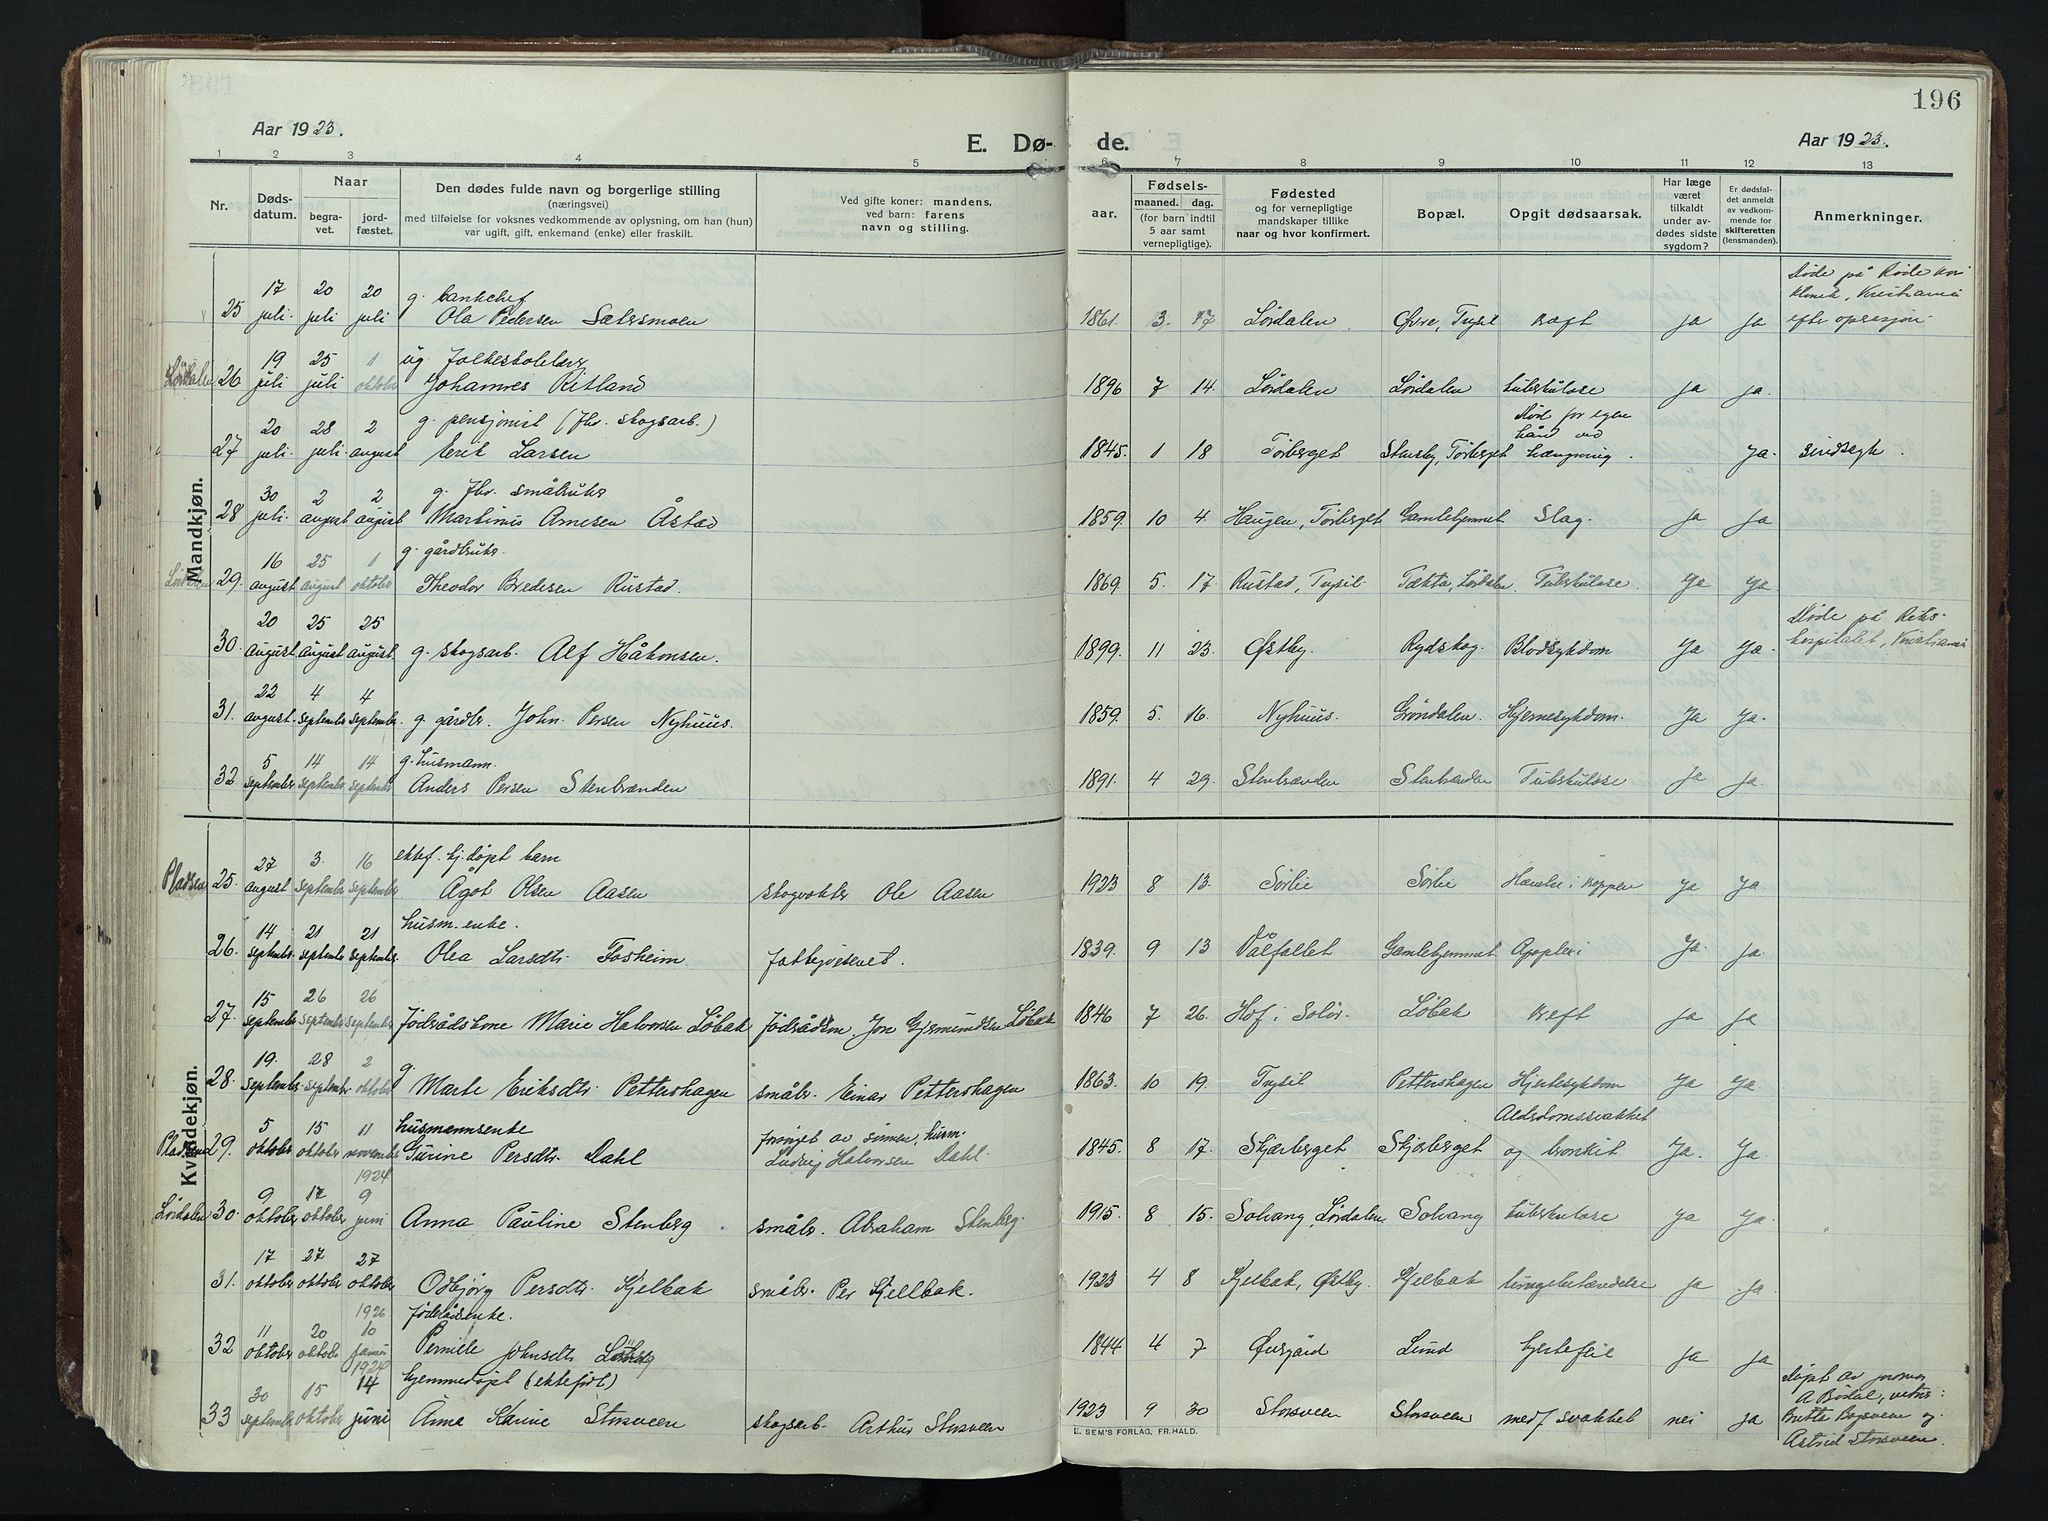 196
Aar 1923.
E. Dø- de.
Aar 1923.
1 2 3 4 5 6 7 8 9 10 11 12 13
Nr.
Døds-
datum.
Naar
begra-
vet.
jord-
fæstet.
Den dødes fulde navn og borgerlige stilling
(næringsvei)
med tilføielse for voksnes vedkommende av oplysning, om han (hun)
var ugift, gift, enkemand (enke) eller fraskilt.
Ved gifte koner: mandens,
ved barn: farens
navn og stilling.
Fødsels-
aar. maaned. dag.
(for barn indtil
5 aar samt
vernepligtige).
Fødested
og for vernepligtige
mandskaper tillike
naar og hvor konfirmert.
Bopæl.
Opgit dødsaarsak.
Har læge
været
tilkaldt
under av-
dødes sidste
sygdom?
Er dødsfal-
det anmeldt
av vedkom-
mende for
skifteretten
(lensmanden).
Anmerkninger.
Mandkjøn.
17 20 20 g. bankchef
25 juli. juli juli Ola Pedersen Sætersmoen 1861. 3. 17 Lørdalen Øvre, Trysil kræft ja ja
Døde på Røde kors
klinik, Kristiania
efter operasjon
19 25 1 ug. Folkeskolelærer
Lørdalen 26 juli juli oktober Johannes Ritland 1896 7 14. Lørdalen Lørdalen tuberkulose ja ja.
20 28 2 g. pensjonist (fhv. skogsarb.)
27 juli. juli. august Erik Larsen 1845. 1 18 Tørberget Stensby, Tørberget Døde for egen
hånd ved
hængning. ja. sindssyk.
30 2 2 g. fhv. småbruker
28 juli. august august Martinus Arnesen Åstad 1859. 10 4. Haugen, Tørberget Gamlehjemmet Slag. ja ja
16 25 1 g. gårdbruker.
Lørdalen 29. august august oktober Theodor Bredesen Rustad. 1869. 5. 17 Rustad, Trysil. Tækta, Lørdalen Tuberkulose. ja ja.
20 25 25
30. august august august g. skogsarb. Alf Håkonsen. 1899. 11 23. Østby. Rydskog. Blodsykdom Ja Ja.
Døde på Riks-
hospitalet, Kristiania
22 4 4
31. august. september september. g. gårdbr. John. Persen Nyhuus. 1859. 5. 16. Nyhuus. Grøndalen. Hjernesykdom. Ja Ja.
5 14 14 g. husmann.
32 september september september Anders Persen Stenbrænden 1891. 4 29. Stenbrænden Stenbrænden Tuberkulose ja Ja.
Kvindekjøn.
27 3. 16 ektef. hj.døpt barn
Pladsen 25. august september september Ågot Olsen Aasen skogvokter Ole Aasen 1923 8 13. Sørlie Sørlie ja ja.
14 21 21 husm.enke.
26. september. september september. Olea Larsdtr. Fosheim fattigvesenet. 1839. 9 13 Våfallet Gamlehjemmet Apoplexi Ja. ja.
15 26 26
27. september september september Føderådskone Marie Halvorsen Løbak Føderådsm. Jon Gjermundsen Løbak 1846 7 26. Hof i Solør. Løbak Kreft ja ja
19. 28 2 g.
28. september september. oktober Marte Eriksdtr. Pettershagen småbr. Einar Pettershagen 1863. 10 19. Trysil Pettershagen Hjertesykdom Ja Ja.
5 15 11 husmannsenke forsørget av sønnen, husm.
Pladsen 29. oktober oktober november Gurine Persdtr. Dahl Ludvig Halvorsen Dahl. 1845. 8 17. Skjærberget Skjærberget Alderdomssvakhet
og bronkit Ja. Ja.
1924
9 17 9
Lørdalen 30. oktober oktober juni Anna Pauline Stenberg småbr. Abraham Stenberg. 1915. 8 15. Solvang, Lørdalen Solvang tuberkulose ja ja.
17 27 27
31. oktober oktober oktober Odbjørg Persdtr. Kjelbak småbr. Per Kjellbak. 1923 4 8 Kjelbak, Østby. Kjelbak lungebetændelse ja ja.
1926 føderådsenke.
11 20 10
32 oktober oktober januar Pernille Johnsdtr. 1844 4 7 Øvergård Lund hjertefeil ja ja
1924 hjemmedøpt (ektefødt)
30 15 14
33 september oktober juni Anna Karine Storsveen skogsarb. Arthur Storsveen 1923 9 30 Storsveen Storsveen medf. svakhet nei ja
Døpt av jormor
A Bødal, vitner:
Britte Bogsveen og
Astrid Storsveen.
E. SEM'S FORLAG, FR.HALD.